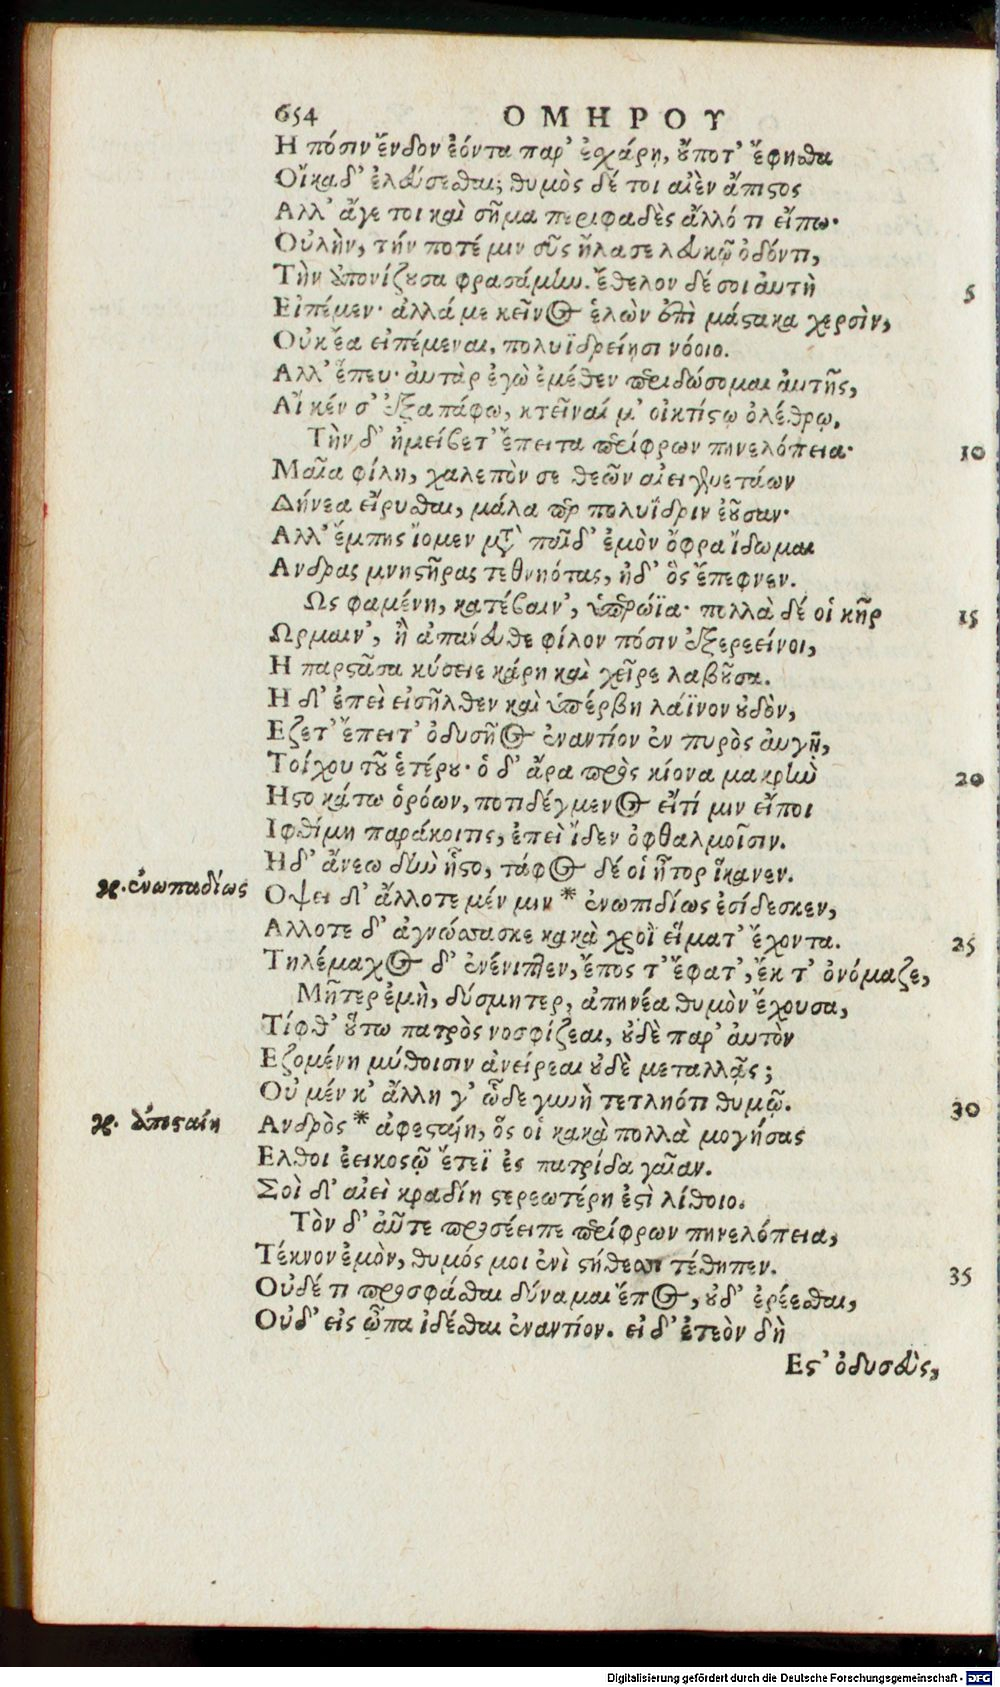 654 ΟΜΗΡΟΥ
Η πόσιν ἔνδον ἐόντα παρ' ἐσχάρῃ, οὔποτ' ἔφησθα
Οἴκαδ' ἐλεύσεσθαι; θυμὸς δέ τοι αἰὲν ἄπιστος
Αλλ' ἄγε τοι καὶ σῆμα περιφαδὲς ἄλλό τι εἴπω·
Οὐλὴν, τήν ποτέ μιν σῦς ἤλασε λευκῷ ὀδόντι,
Τὴν ἀπονίζουσα φρασάμην. ἔθελον δέ σοι αὐτῇ 5
Εἰπέμεν· ἀλλά με κεῖνος ἑλὼν ἐπὶ μάστακα χερσὶν,
Οὐκ ἔα εἰπέμεναι, πολυϊδρείῃσι νόοιο.
Αλλ' ἕπευ· αὐτὰρ ἐγὼ ἐμέθεν περιδώσομαι αὐτῆς,
Αἴ κέν σ' ἐξαπάφω, κτεῖναί μ' οἰκτίστῳ ὀλέθρῳ.
Τὴν δ' ἠμείβετ' ἔπειτα περίφρων πηνελόπεια· 10
Μαῖα φίλη, χαλεπὸν σε θεῶν αἰειγενετάων
Δήνεα εἴρυσθαι, μάλα περ πολυΐδριν ἐοῦσαν·
Αλλ' ἔμπης ἴομεν μετὰ παῖδ' ἐμὸν ὄφρα ἴδωμαι
Ανδρας μνηστῆρας τεθνηότας, ἠδ' ὃς ἔπεφνεν.
Ως φαμένη, κατέβαιν', ὑπερώϊα· πολλὰ δέ οἱ κῆρ 15
Ωρμαιν', ἢ ἀπάνευθε φίλον πόσιν ἐξερεείνοι,
Η παρστᾶσα κύσειε κάρη καὶ χεῖρε λαβοῦσα.
Η δ' ἐπεὶ εἰσῆλθεν καὶ ὑπέρβη λάϊνον οὐδὸν,
Εζετ' ἔπειτ' ὀδυσῆος ἐναντίον ἐν πυρὸς αὐγῇ,
Τοίχου τοῦ ἑτέρου· ὁ δ' ἄρα πρὸς κίονα μακρὴν 20
Ηστο κάτω ὁρόων, ποτιδέγμενος εἴ τί μιν εἴποι
Ιφθίμη παράκοιτις, ἐπεὶ ἴδεν ὀφθαλμοῖσιν.
Η δ' ἄνεω δὴν ἧστο, τάφος δέ οἱ ἦτορ ἵκανεν.
γρ. ἐνωπαδίως Οψει δ' ἄλλοτε μέν μιν * ἐνωπιδίως ἐσίδεσκεν,
Αλλοτε δ' ἀγνώσασκε κακὰ χροῒ εἵματ' ἔχοντα. 25
Τηλέμαχος δ' ἐνένιπτεν, ἔπος τ' ἔφατ', ἔκ τ' ὀνόμαζε,
Μῆτερ ἐμὴ, δύσμητερ, ἀπηνέα θυμὸν ἔχουσα,
Τίφθ' οὕτω πατρὸς νοσφίζεαι, οὐδὲ παρ' αὐτὸν
Εζομένη μύθοισιν ἀνείρεαι οὐδὲ μεταλλᾷς;
Οὐ μέν κ' ἄλλη γ' ὧδε γυνὴ τετληότι θυμῷ. 30
γρ. ἀποσταίη Ανδρὸς * ἀφεσταίη, ὅς οἱ κακὰ πολλὰ μογήσας
Ελθοι ἐεικοστῷ ἔτεϊ ἐς πατρίδα γαῖαν.
Σοὶ δ' αἰεὶ κραδίη στερεωτέρη ἐστὶ λίθοιο.
Τὸν δ' αὖτε προσέειπε περίφρων πηνελόπεια,
Τέκνον ἐμὸν, θυμός μοι ἐνὶ στήθεσσι τέθηπεν. 35
Οὐδέ τι προσφάσθαι δύναμαι ἔπος, οὐδ' ἐρέεσθαι,
Οὐδ' εἰς ὦπα ἰδέσθαι ἐναντίον. εἰ δ' ἐτεὸν δὴ
Εστ' ὀδυσεὺς,
Digitalisierung gefördert durch die Deutsche Forschungsgemeinschaft - DFG